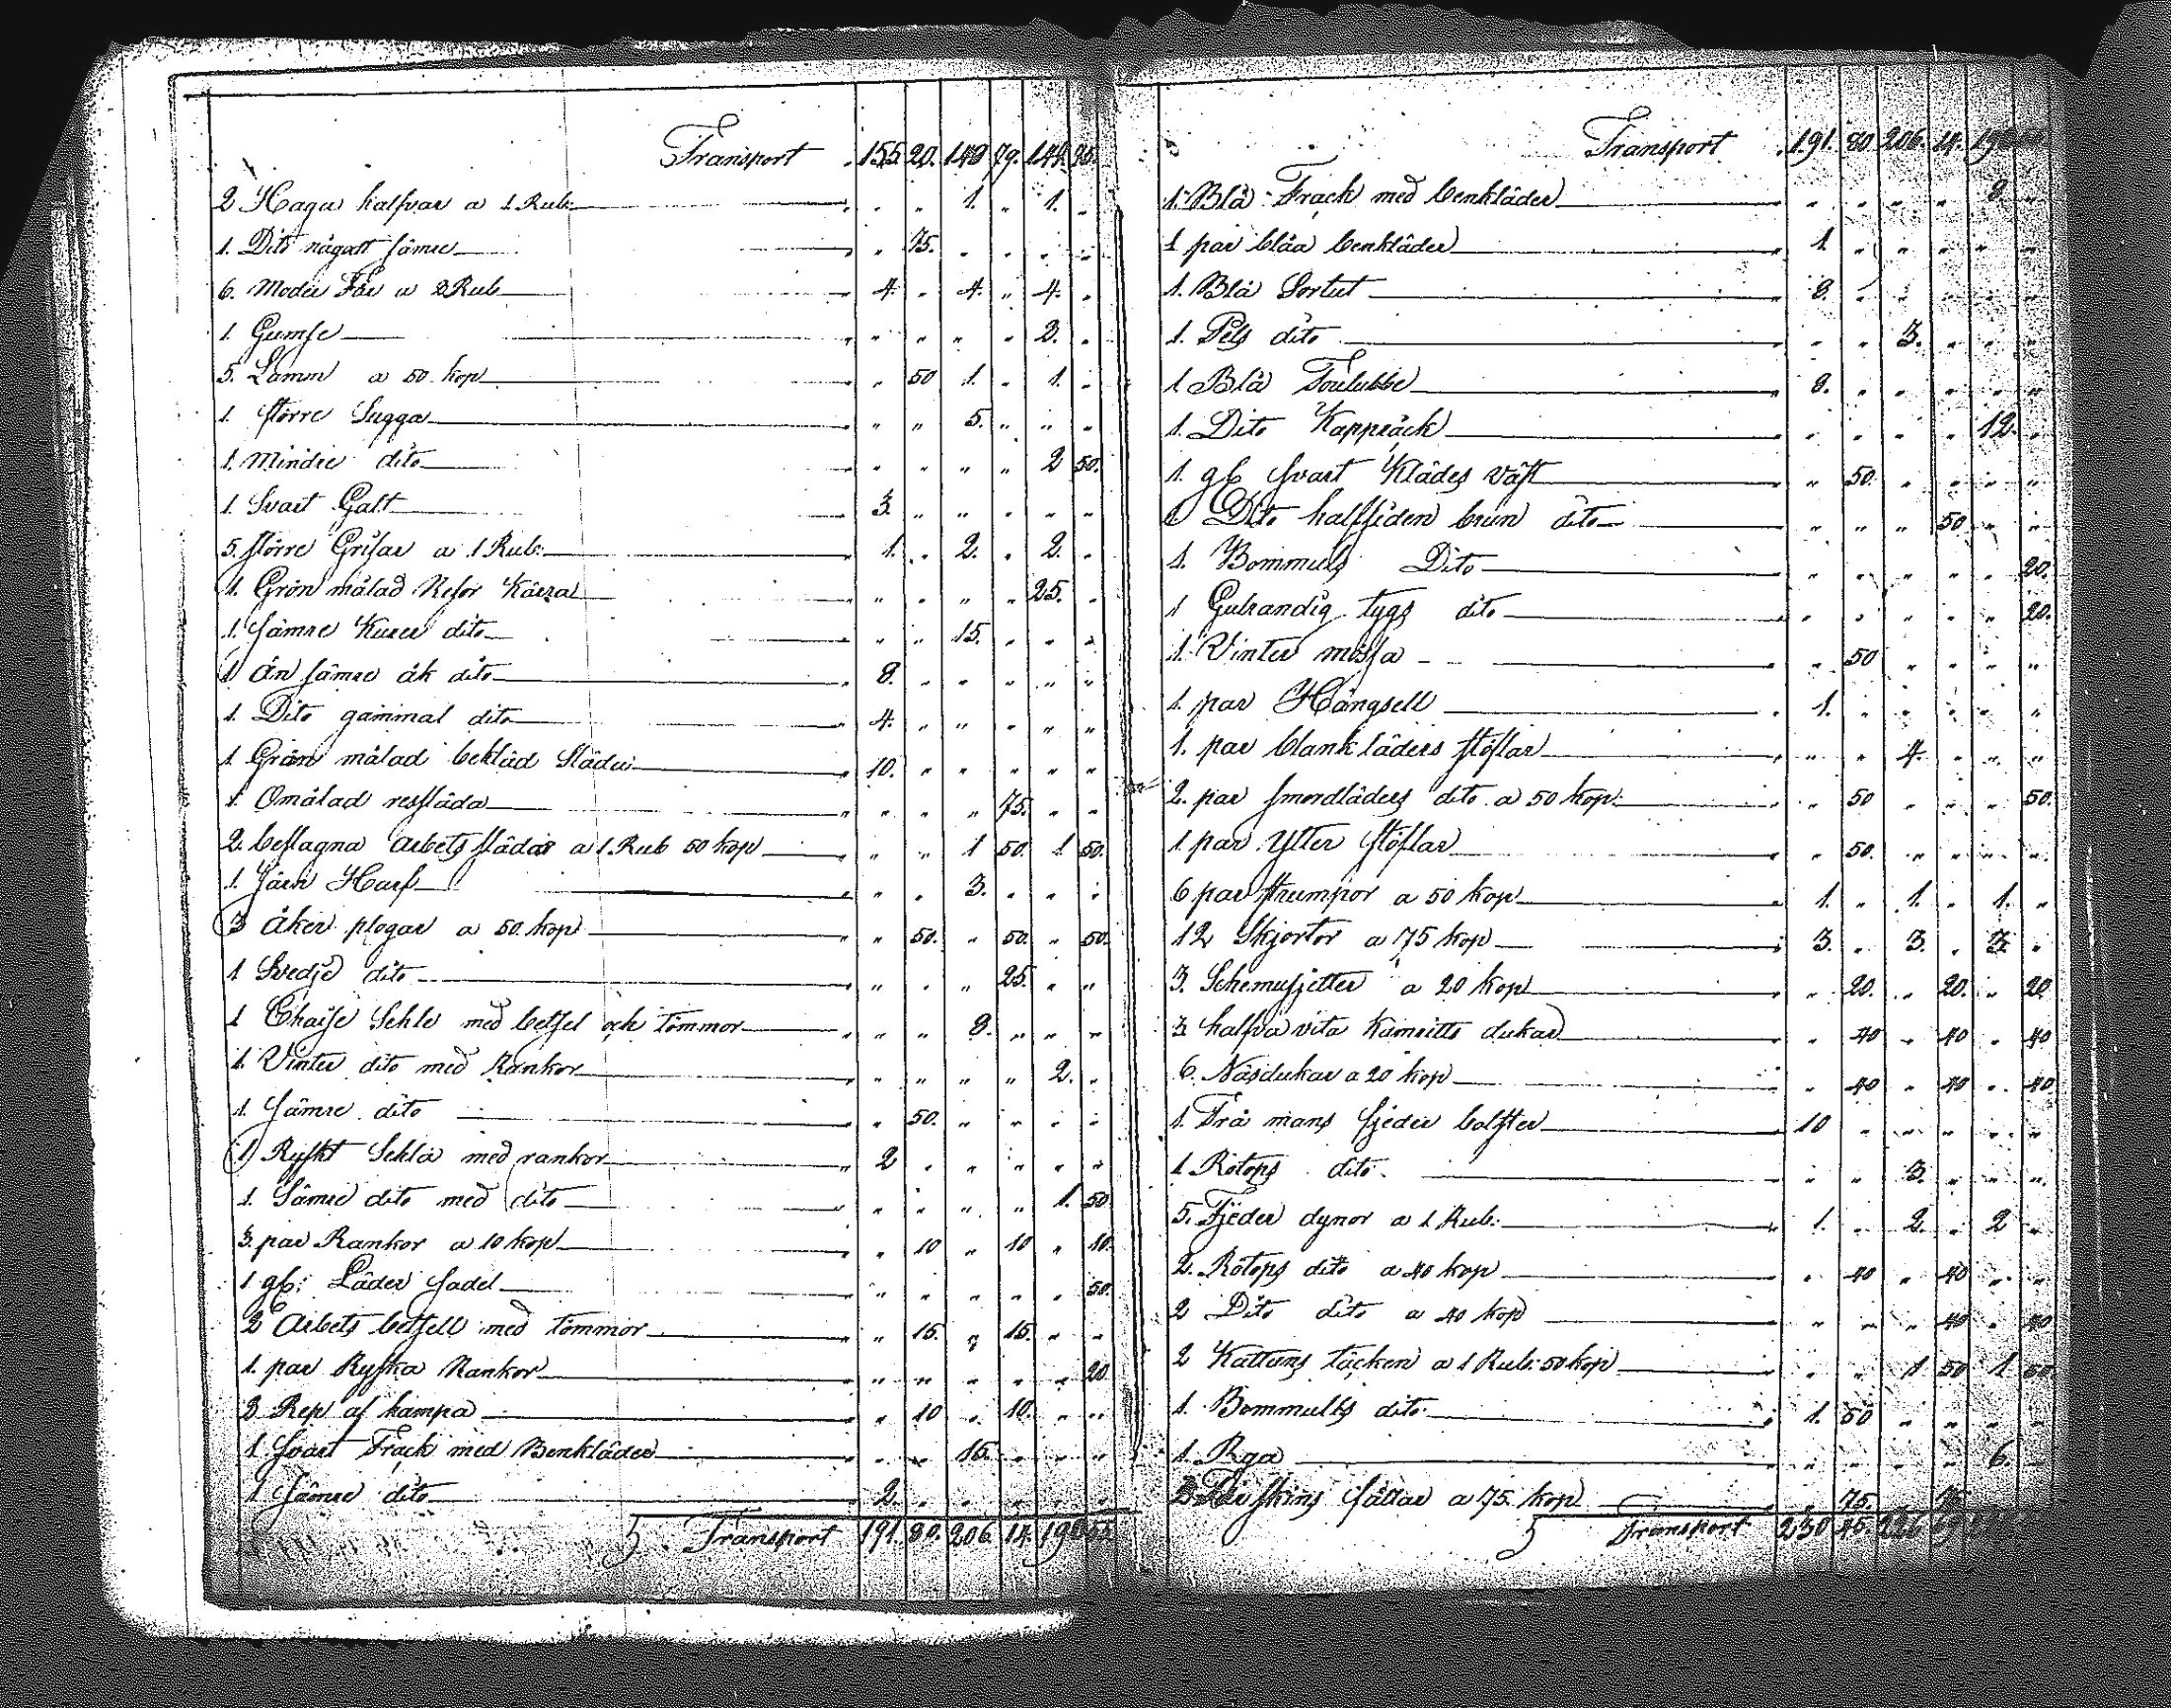 Transport 155. 20. 149 79. 144. 95.
2 Haga halfvar a 1 Rub: " " 1. " 1. "
1. Dito något sämre " 75. " " " "
6. Moder Får a 2 Rub 4. " 4. " 4. "
1 Gumse " " " " 2. "
5. Lamm a 50 kop " 50 1. " 1. "
1 större Sugga " " 5. " " "
1. Mindre dito " " " " 2 50.
1 Svart Galt 3. " " " " "
5. större Grisar a 1 Rub: 1. " 2. " 2. "
1. Grön målad Resor Kärra " " " " 25. "
1. sämre Kurer dito " " 15. " " "
1 än sämre åk dito 8. " " " " "
1. Dito gammal dito 4. " " " " "
1 Grön målad beklädd Släda 10. " " " " "
1. Omålad ressläda " " " 75. " "
2. beslagna arbets slädar a 1 Rub 50 kop " " 1 50. 1 50.
1. Järn Harf " " 3. " " "
3 åker plogar a 50. kop " 50. " 50. " 50.
1 Svedje dito " " " 25. " "
1 Chaise Sehle med betsel och tömmor " " 8. " " "
1. Vinter dito med Rankor " " " " 2. "
1. Sämre dito " 50. " " " "
1 Ryskt Sehla med rankor 2 " " " " "
1. Sämre dito med dito " " " " 1. 50
3. par Rankor a 10 kop " 10 " 10 " 10.
1 gl: Läder Sadel " " " " " 50.
2 Arbets betsell med tömmor " 15. " 15. " "
1. par Ryska Rankor " " " " " 20
2 Rep af hampa " 10 " 10. " "
1 Svart Frack med Benkläder " " 15. " " "
1 Sämre dito 2. " " " " "
Transport 191. 80. 206. 14. 190
Transport 191. 80 206. 14.
1. Blå Frack med benkläder " " " " 8. "
1 par blåa benkläder 1. " " " " "
1. Blå Sortut 8. " " " " "
1. Pels dito " " 3. " " "
1 Blå Toulubbe 8. " " " " "
1. Dito Kappråck " " " " 12. "
1. gl svart Klädes väst " 50. " " " "
1 Dito halfsiden brun dito " " " 50 " "
1. Bommuls Dito " " " " " 20.
1 Gulrandig tygs dito " " " " " 20.
1. Vinter mössa " 50 " " " "
1. par Hängsell 1. " " " " "
1. par blankläders stöflar " " 4. " " "
2. par smordläders dito a 50 kop: " 50 " " " 50.
1 par Ytter stöflar " 50. " " " "
6 par strumpor a 50 kop 1. " 1. " 1. "
12 Skjortor a 75 kop 3. " 3. " 3. "
3. Schemusjetter a 20 kop " 20. " 20. " 20
3 halfva vita kamritts dukar " 40 " 40 " 40
6. Näsdukar a 20 kop " 40 " 40 " 40
1. Två mans fjeder bolster 10 " " " " "
1 Rötops dito " " 3. " " "
5. Fjeder dynor a 1 Rub: 1. " 2. " 2 "
2. Rötops dito a 40 kop " 40 " 40 " "
2 Dito dito a 40 kop " " " 40 " 40
2 Kattuns täcken a 1 Rub: 50 kop " " 1 50 1 50
1. Bommulls dito 1. 50 " " " "
1 Rya " " " " 6. "
skins fällar a 75. kop " 75.
Transport 230 45. 226